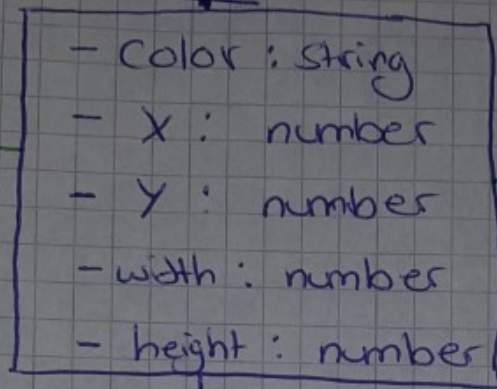 - Color : string
- X : number
- Y : number
- width : number
- height : number